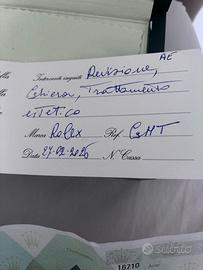 AE
Interventi eseguiti Revisione,
Ghiera, Trattamento
estetico
Marca Rolex Ref. GMT
Data 27-02-2025 N. Cassa
subito
16710